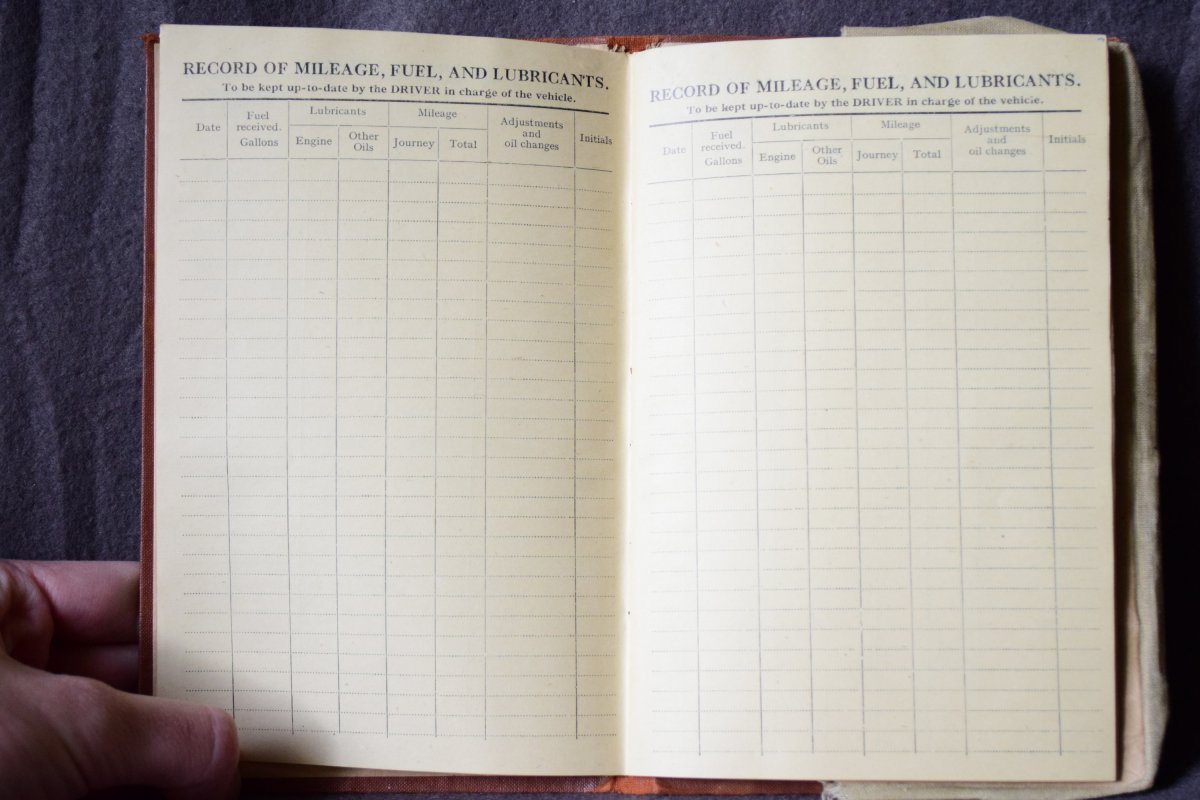 RECORD OF MILEAGE, FUEL, AND LUBRICANTS.
To be kept up-to-date by the DRIVER in charge of the vehicle.
Date
Fuel
received.
Gallons
Lubricants
Engine
Other
Oils
Mileage
Journey
Total
Adjustments
and
oil changes
Initials
RECORD OF MILEAGE, FUEL, AND LUBRICANTS.
To be kept up-to-date by the DRIVER in charge of the vehicle.
Date
Fuel
received.
Gallons
Lubricants
Engine
Other
Oils
Mileage
Journey
Total
Adjustments
and
oil changes
Initials